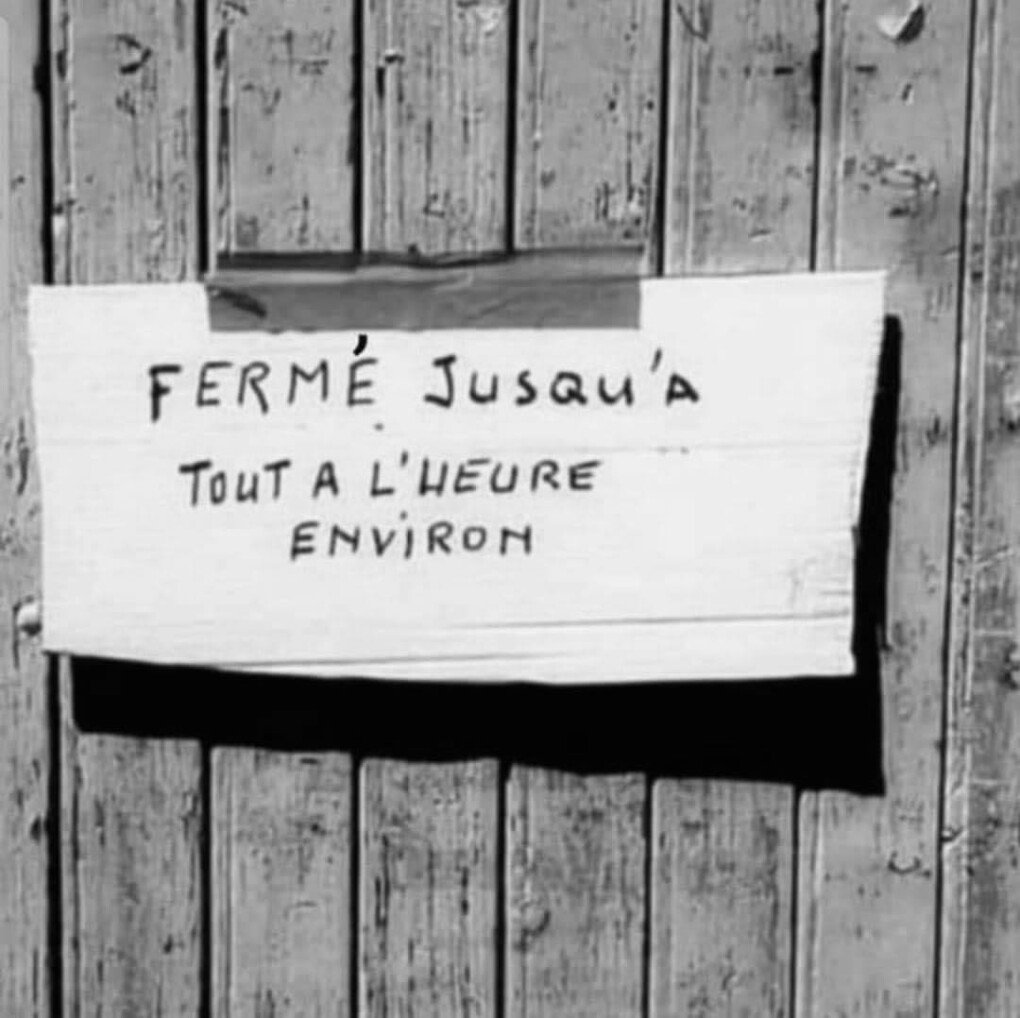 FERMÉ JUSQU'A
TOUT A L'HEURE
ENVIRON